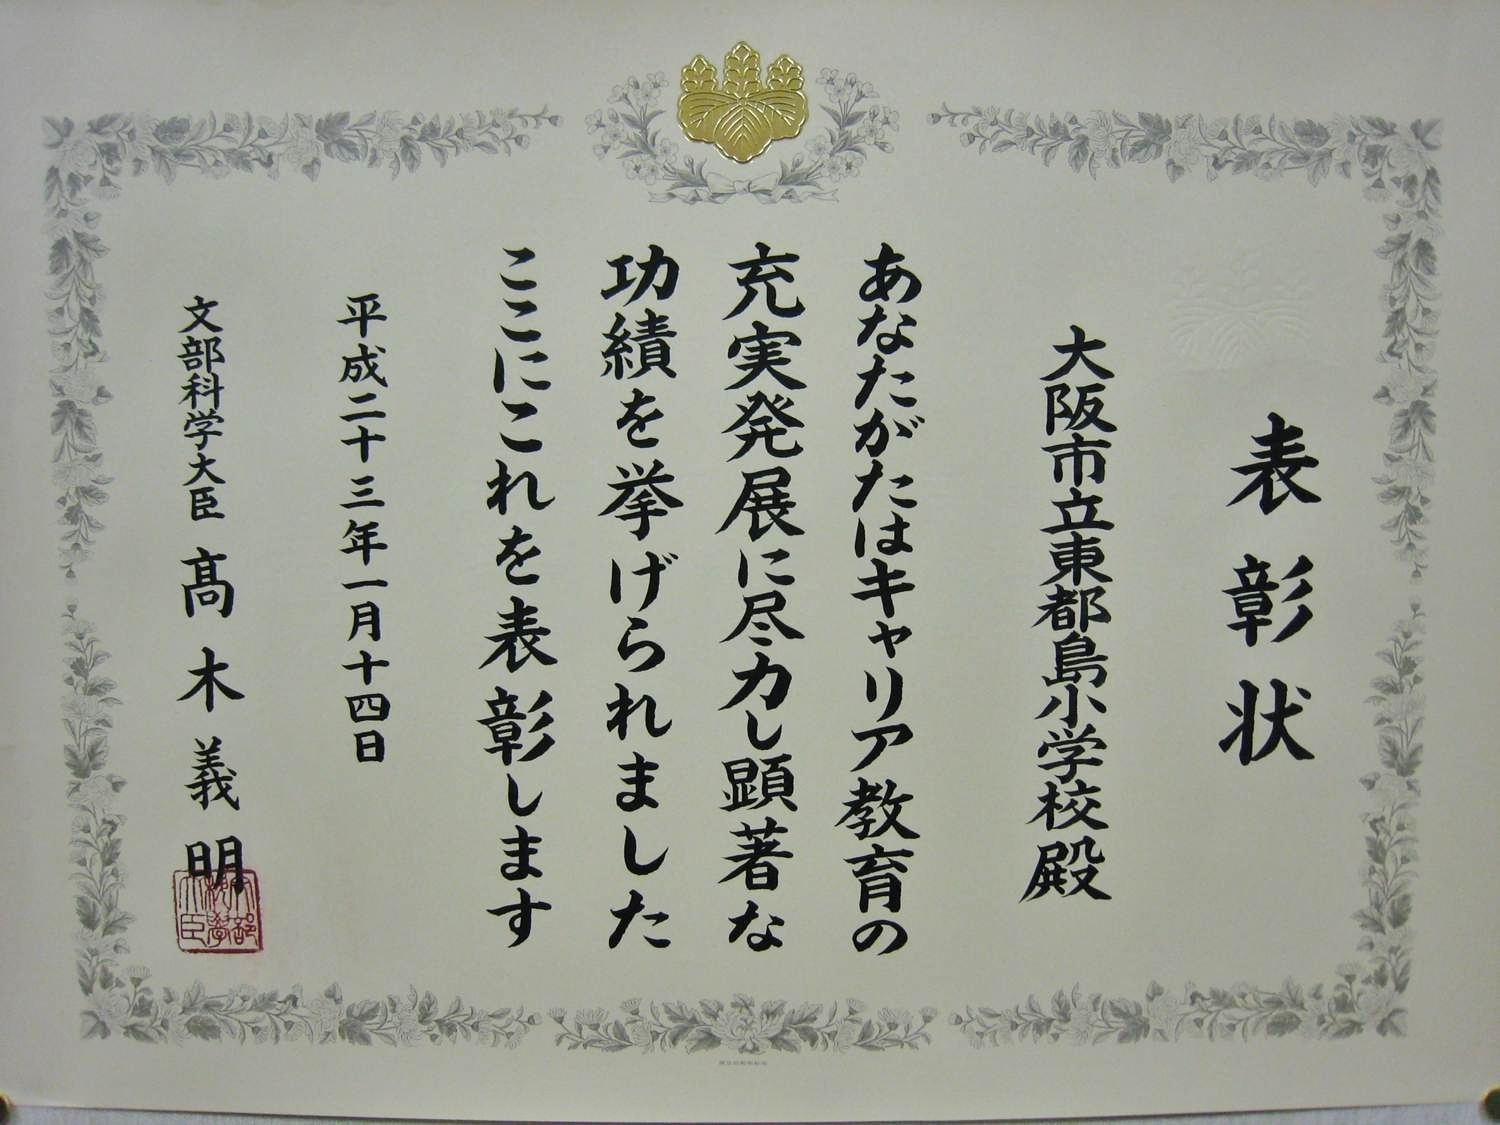 表彰状
大阪市立東都島小学校殿
あなたがたはキャリア教育の
充実発展に尽力し顕著な
功績を挙げられました
ここにこれを表彰します
平成二十三年一月十四日
文部科学大臣 髙木義明
文部
科学
大臣